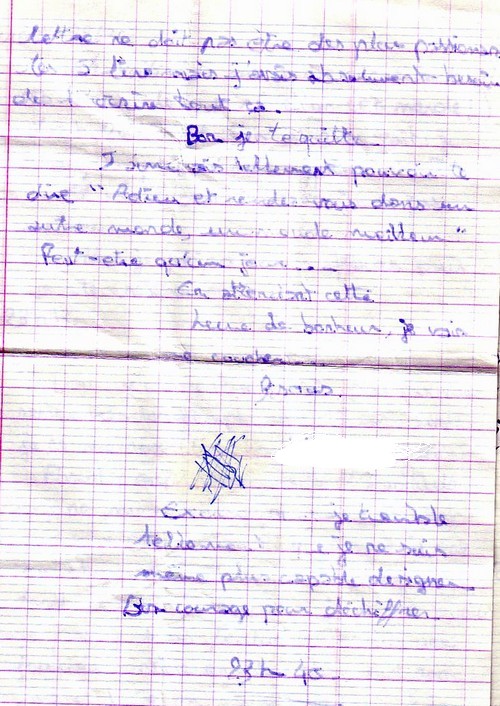 lettre ne doit pas être des plus passionnan
tes à lire mais j'avais absolument besoin
de t'écrire tout ça.
Bon je te quitte.
J'aimerais tellement pouvoir te
dire "Adieu et rendez vous dans un
autre monde, un monde meilleur"
Peut-être qu'un jour....
En attendant cette
heure de bonheur, je vais
me coucher....
je tremble
tellement que je ne suis
même plus capable de signer
Bon courage pour déchiffrer
23h 45